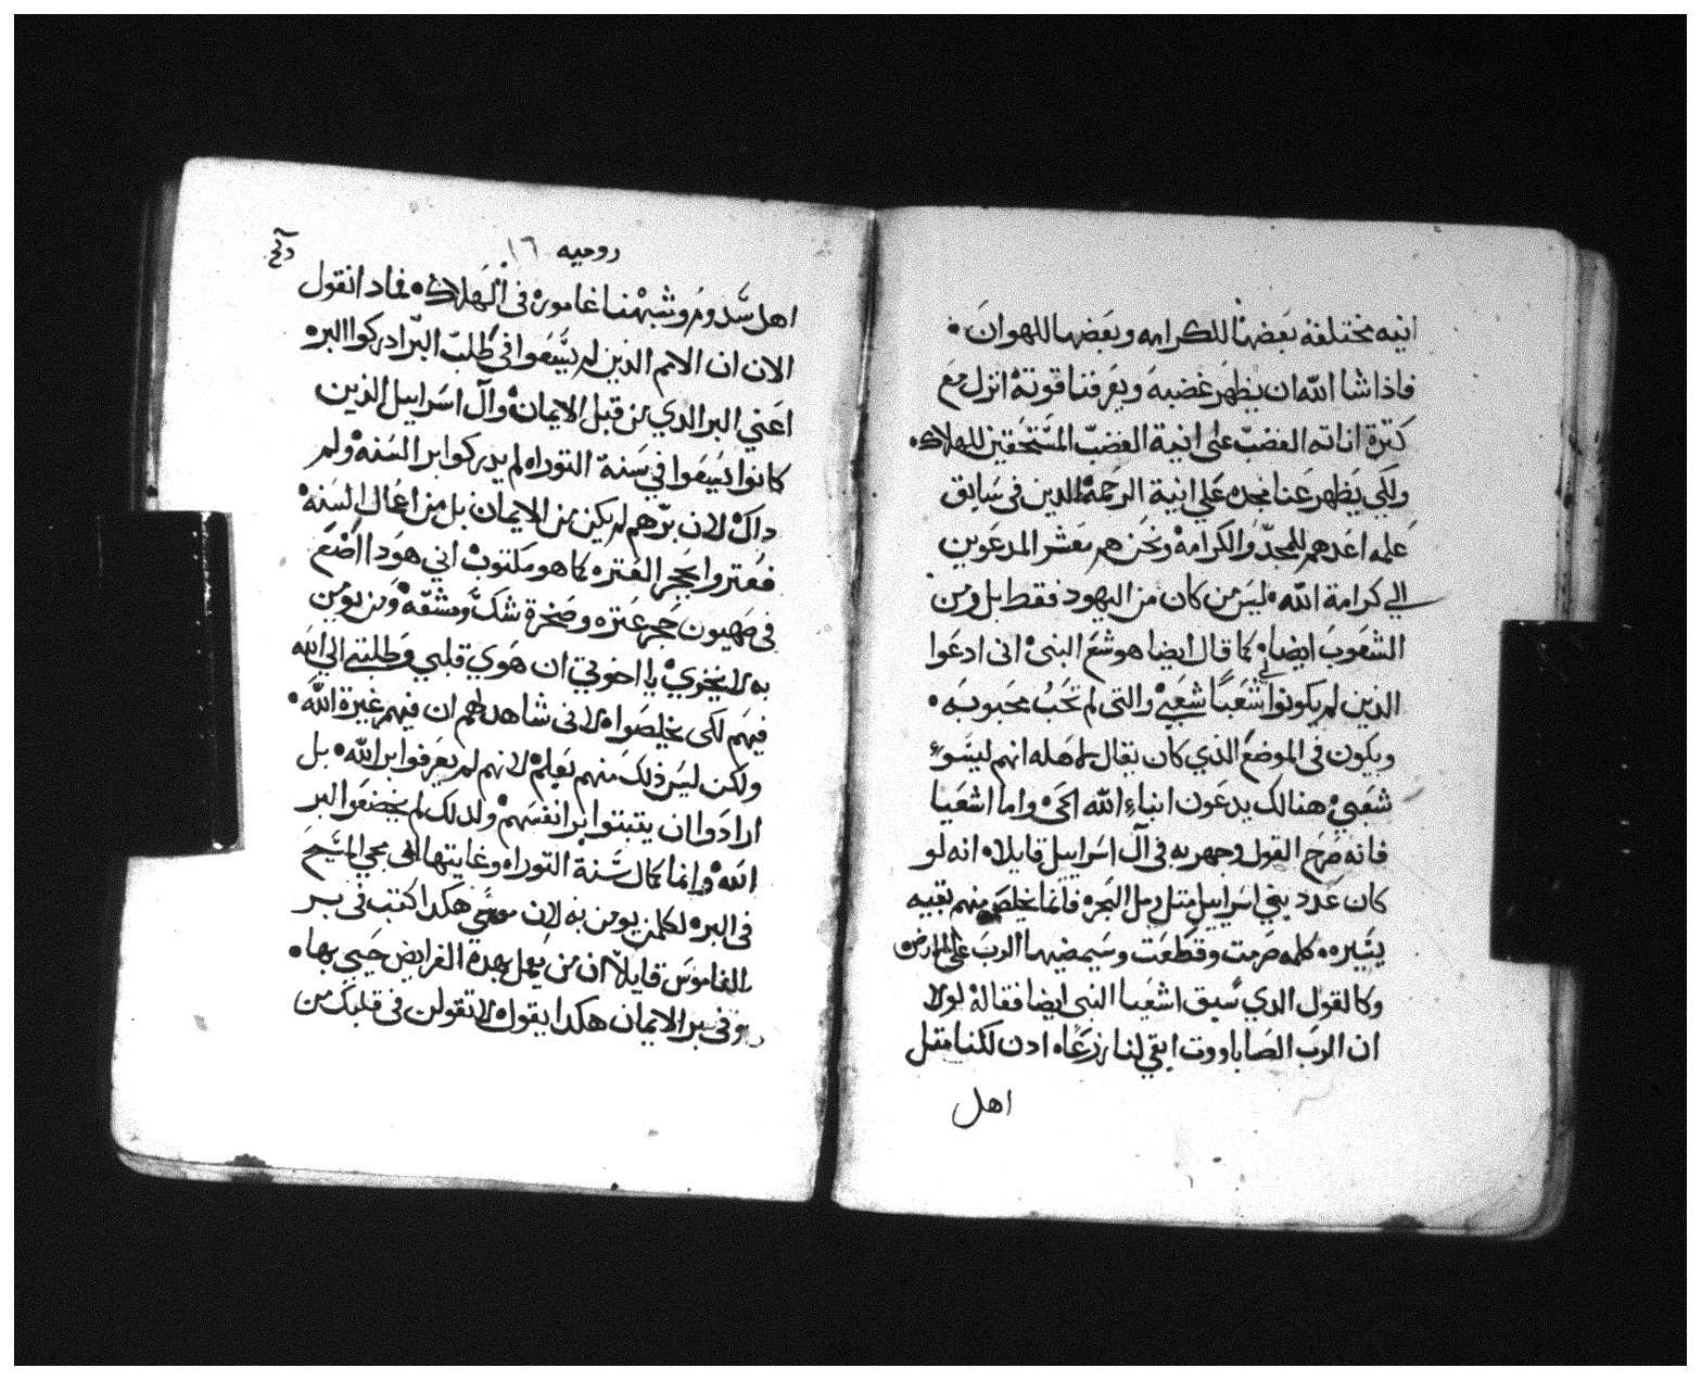 انيه مختلفة بعضها للكرامه وبعضها للهوان.
فاذا شا الله ان يظهر غضبه ويعرفنا قوته انزل مع
كترة اناته الغضب على انية الغضب المستحقين للهلاك.
ولكي يظهر عنا مجده علي انية الرحمة الدين في سابق
علمه اعدهم للمجد والكرامة ونحن هم معشر المدعوين
الي كرامة الله ليس من كان من اليهود فقط بل ومن
الشعوب ايضا كما قال ايضا هوشع النبي اني ادعوا
الدين لم يكونوا لي شعبا شعبي والتي لم تحب محبوبه.
ويكون في الموضع الذي كان يقال لاهله انهم ليسوا
شعبي هنالك يدعون ابناء الله الحي واما اشعيا
فانه صرح القول وجهر به في آل اسراييل قايلا انه لو
كان عدد بني اسراييل متل رمل البحر فانما يخلص منهم بقيه
يسيره كلمه صرمت وقطعت وسيمضيها الرب على الارض
وكالقول الدي سبق اشعيا النبي ايضا فقاله لولا
ان الرب الصاباووت ابقي لنا زرعا ادن لكنا متل
اهل
روميه ١٦
اهل سدوم وشبهنا غامورة في الهلاك فماد انقول
الان ان الامم الذين لم يسعوا في طلب البر ادركوا البر
اعني البر الدي من قبل الايمان وآل اسراييل الذين
كانوا يسعوا في سنة التوراه لم يدركوا بر السنة ولم
داك لان برهم لم يكن من الايمان بل من اعمال السنة
فعتروا بحجر العتره كما هو مكتوب اني هودا اضع
في صهيون حجر عتره وصخرة شك ومن يومن
به لا يخزي يا اخوتي ان هوي قلبي وطلبتي الي الله
فيهم لكي يخلصوا لاني شاهد لهم ان فيهم غيرة الله.
ولكن ليس ذلك منهم بعلم لانهم لم يعرفوا بر الله بل
ارادوا ان يتبتوا بر انفسهم ولدلك لم يخضعوا لبر
الله وانما كمال سنة التوراه وغايتها الى مجي المسيح
في البر لكلمن يومن به لان موسي هكدا كتب في بر
الناموس قايلا ان من يعمل بهدة الفرايض حيي بها.
وفي بر الايمان هكدا يقول لا تقولن في قلبك من